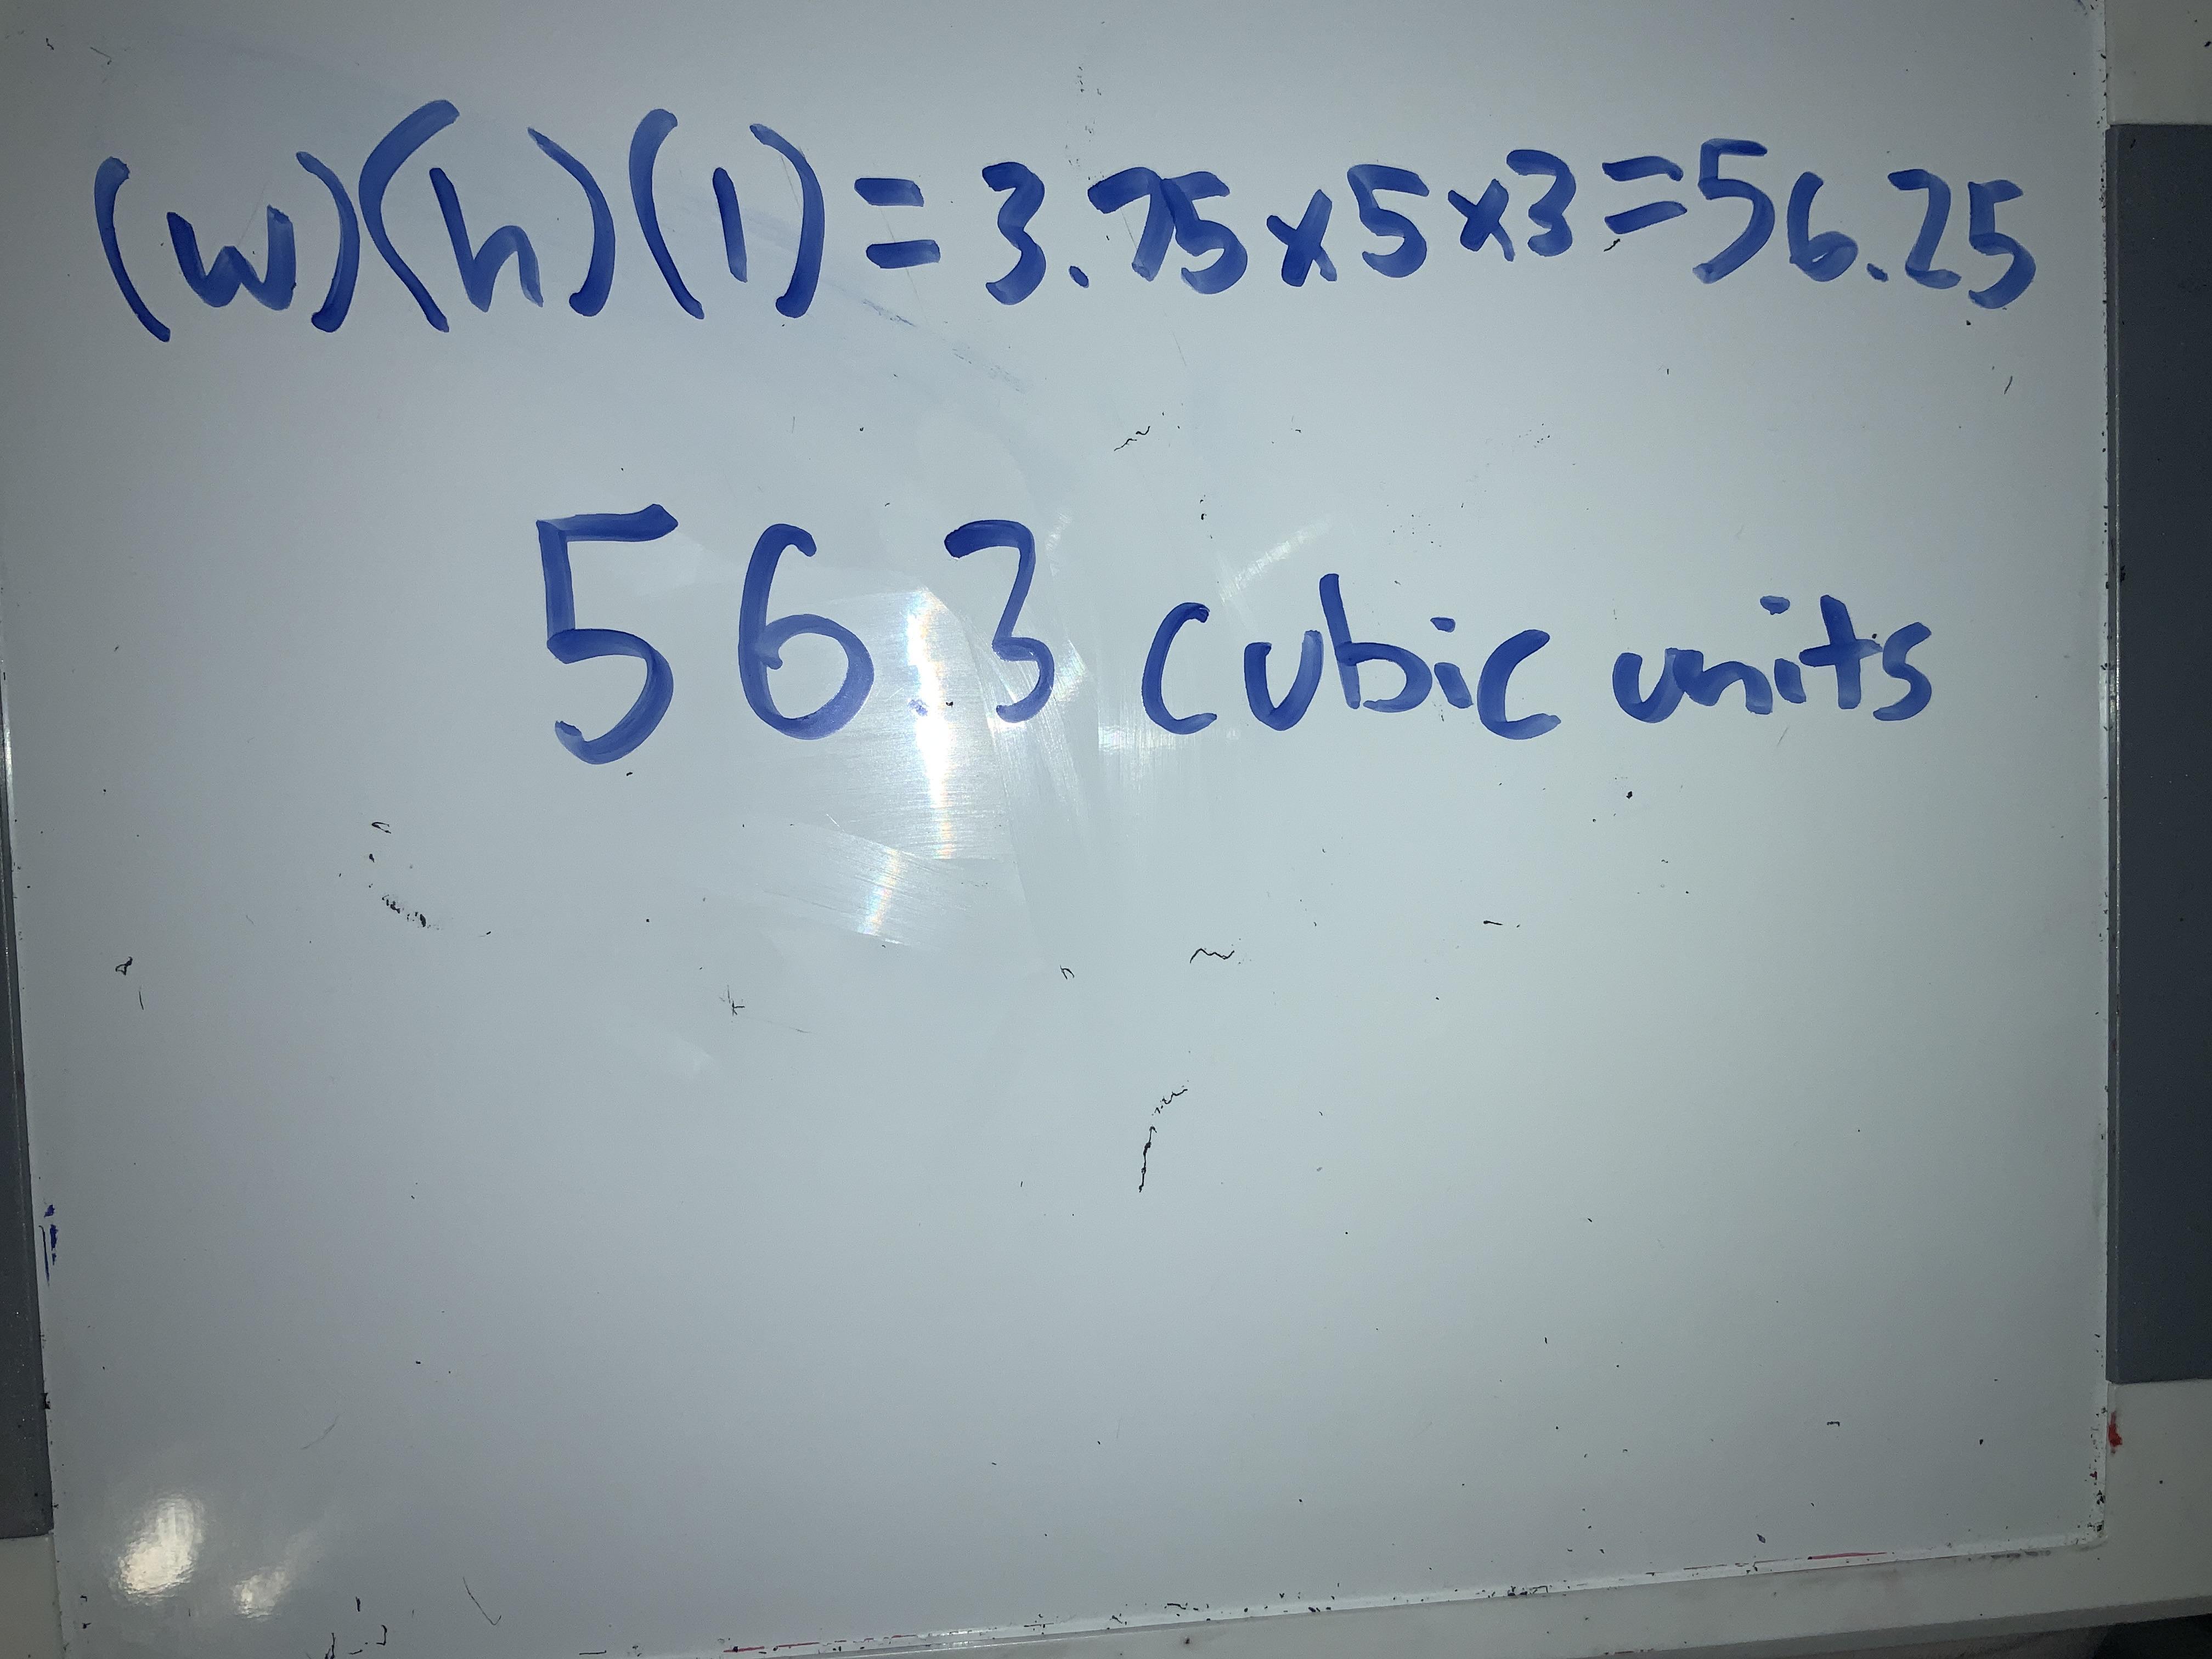 (w)(h)(l)=3.75x5x3=56.25
56.3 cubic units